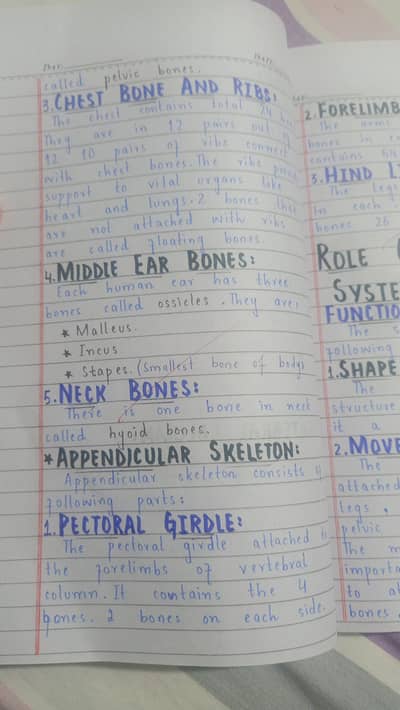 called pelvic bones.
3. CHEST BONE AND RIBS:
The chest contains total 24
They are in 12 pairs out of
12 10 pairs of ribs connect
with chest bones. The ribs
support to vital organs like
heart and lungs. 2 bones that
are not attached with ribs
are called floating bones.
4. MIDDLE EAR BONES:
Each human ear has three
bones called ossicles. They are:
* Malleus.
* Incus
* Stapes. (Smallest bone of body)
5. NECK BONES:
There is one bone in neck
called hyoid bones.
* APPENDICULAR SKELETON:
Appendicular skeleton consists of
following parts:
1. PECTORAL GIRDLE:
The pectoral girdle attached to
the forelimbs of vertebral
column. It contains the 4
bones. 2 bones on each side.
2. FORELIMB
The
bones in
contains
3. HIND
The legs
in each
bones 26
ROLE
SYSTE
FUNCTIO
The
following
1. SHAPE
The
structure
it a
2. MOVE
The
attached
legs,
pelvic
The m
importa
to
bones.